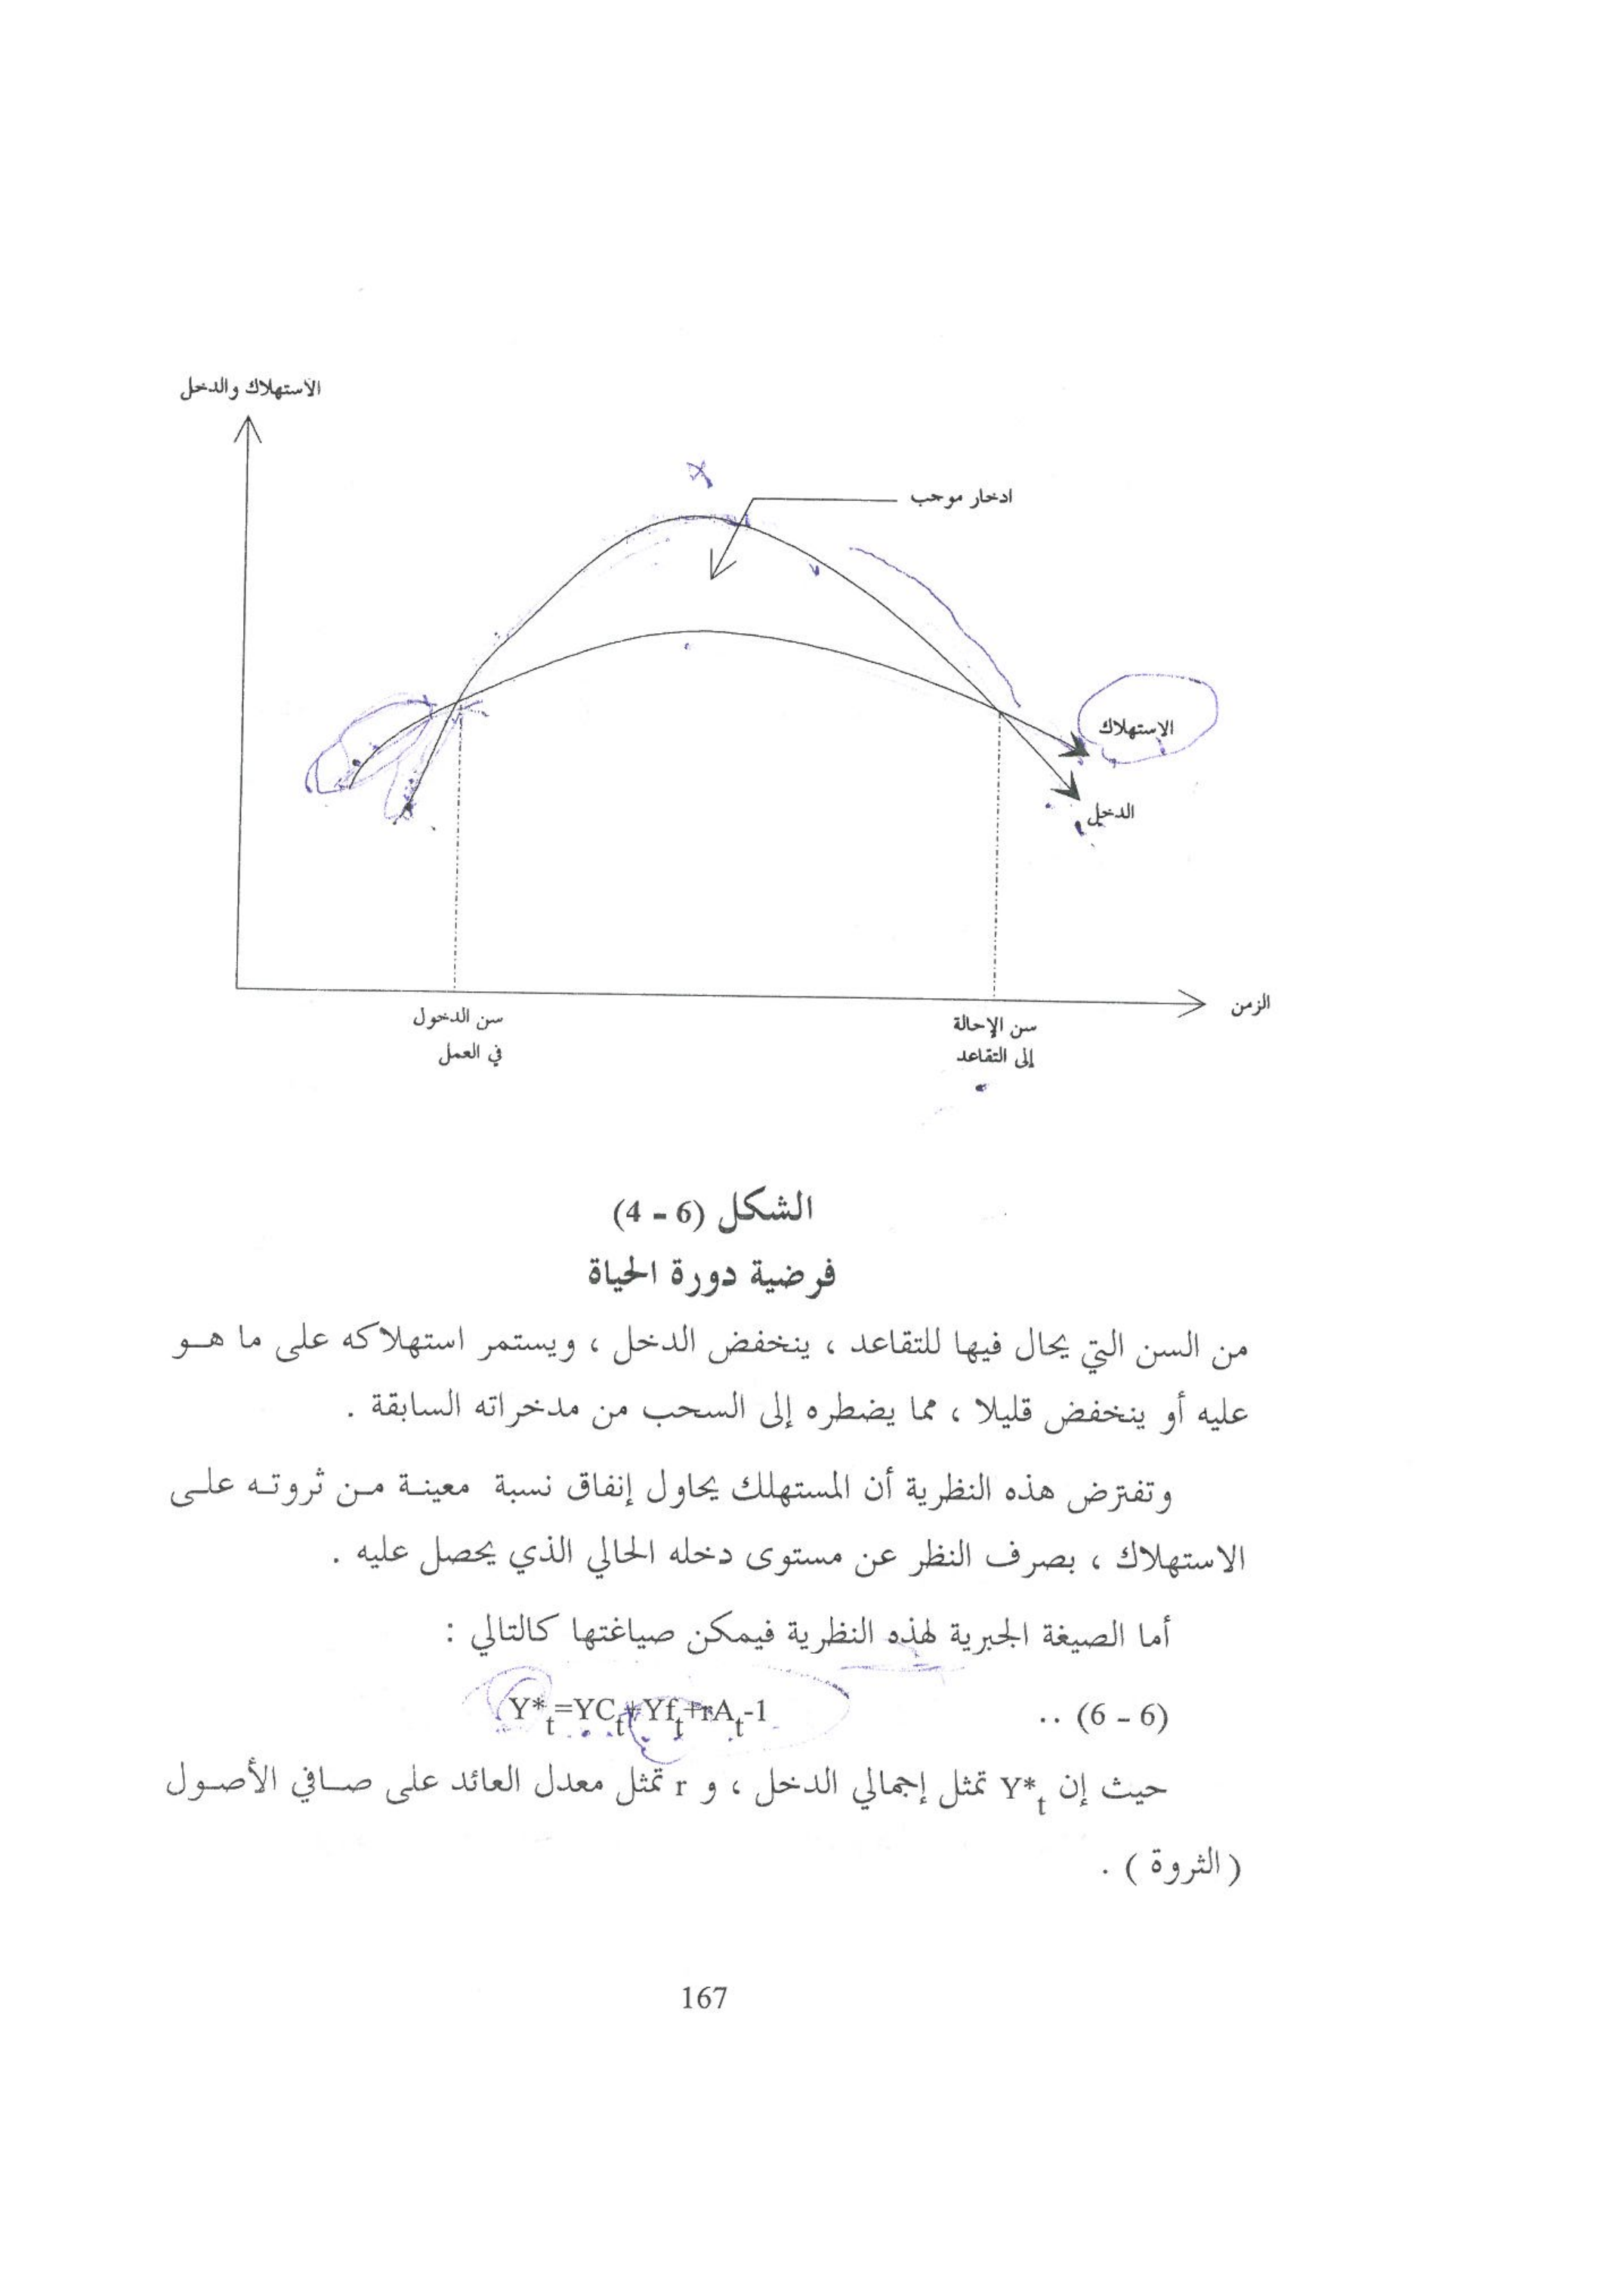 الاستهلاك والدخل
ادخار موجب
الاستهلاك
الدخل
الزمن
سن الدخول
في العمل
سن الإحالة
إلى التقاعد
الشكل (6 - 4)
فرضية دورة الحياة
من السن التي يحال فيها للتقاعد ، ينخفض الدخل ، ويستمر استهلاكه على ما هو
عليه أو ينخفض قليلا ، مما يضطره إلى السحب من مدخراته السابقة .
وتفترض هذه النظرية أن المستهلك يحاول إنفاق نسبة معينة من ثروته على
الاستهلاك ، بصرف النظر عن مستوى دخله الحالي الذي يحصل عليه .
أما الصيغة الجبرية لهذه النظرية فيمكن صياغتها كالتالي :
(6 - 6) .. Y*t=YCt+Yft+rAt-1
حيث إن Y*t تمثل إجمالي الدخل ، و r تمثل معدل العائد على صافي الأصول
( الثروة ) .
167